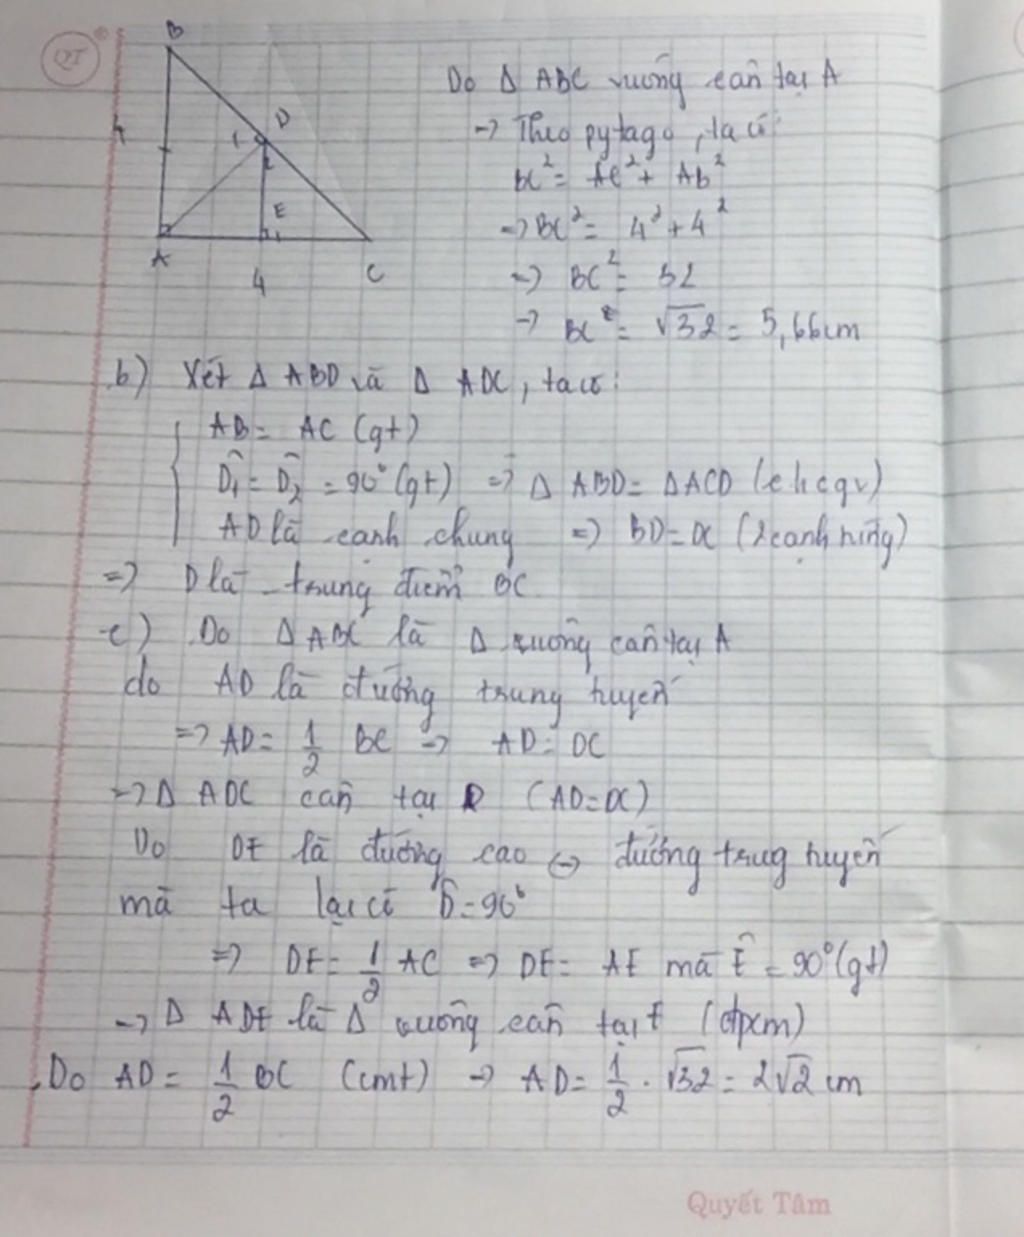 B
D
1
2
4
E
1
A
4
C
Do Δ ABC vuông cân tại A
-> Theo pytago, ta có:
BC² = AC² + Ab²
=> BC² = 4² + 4²
=> BC² = 32
-> BC = √32 = 5,66cm
b) Xét Δ ABD và Δ ADC, ta có:
AB = AC (gt)
D̂₁ = D̂₂ = 90° (gt) => Δ ABD = ΔACD (chcgv)
AD là cạnh chung => BD = DC (2 cạnh tứng)
=> D là trung điểm BC
c) Do Δ ABC là Δ vuông cân tại A
do AD là đường trung tuyến
=> AD = 1/2 BC -> AD = DC
-> Δ ADC cân tại D (AD = DC)
Do DE là đường cao <-> đường trug tuyến
mà ta lại có D̂ = 90°
=> DE = 1/2 AC => DE = AE mà Ê = 90° (gt)
-> Δ ADE là Δ vuông cân tại E (đpcm)
Do AD = 1/2 BC (cmt) -> AD = 1/2 . √32 = 2√2 cm
Quyết Tâm